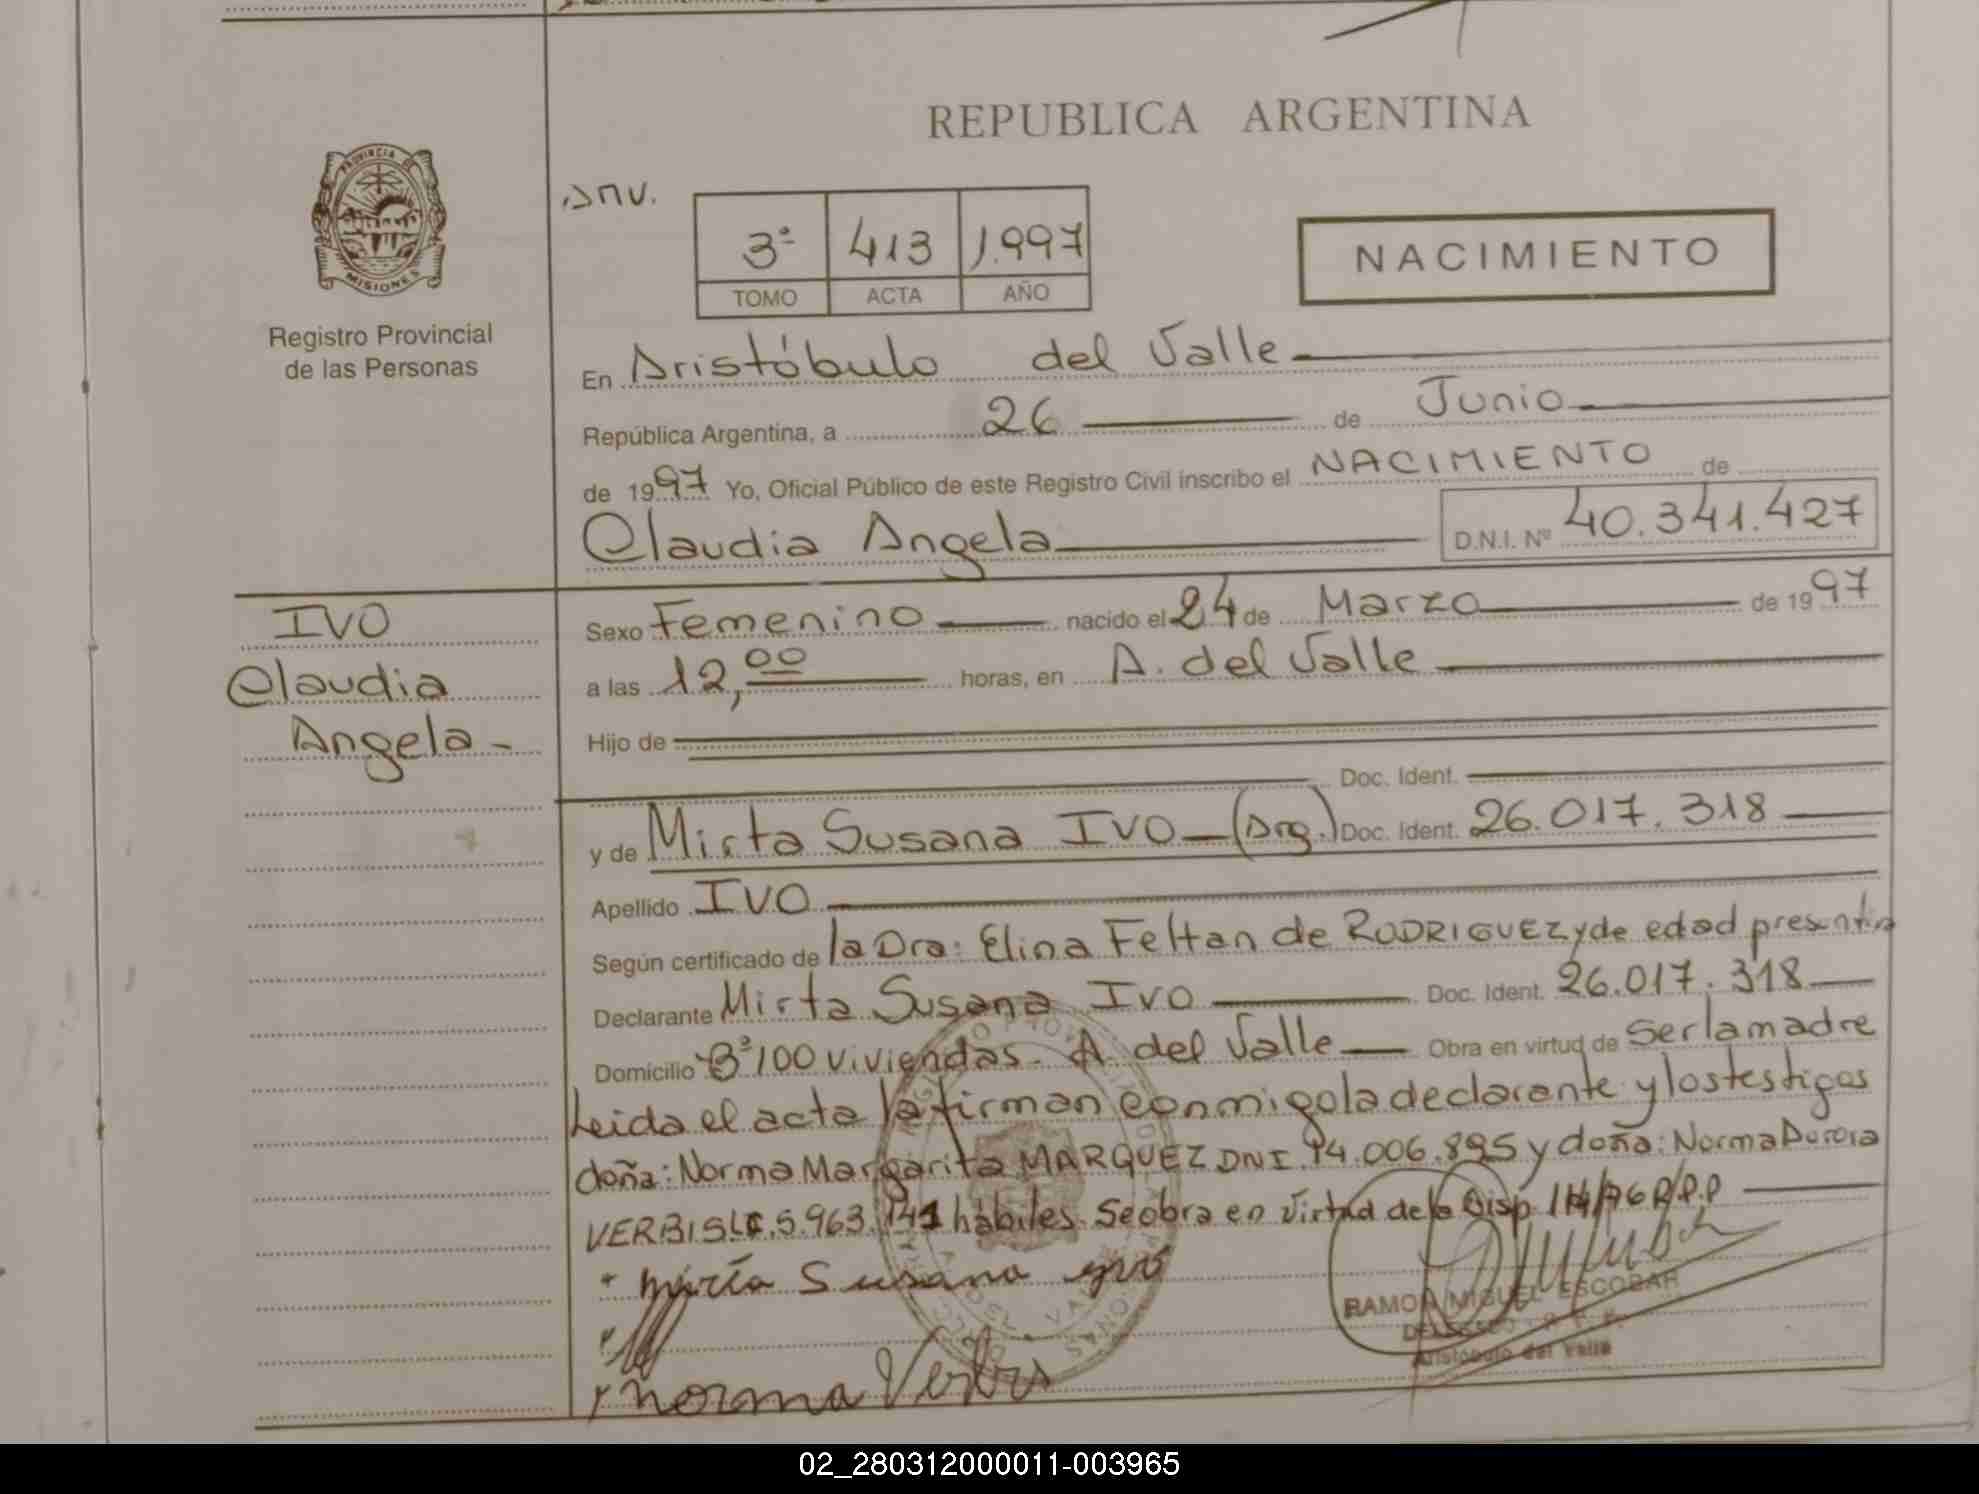 REPUBLICA ARGENTINA
PROVINCIA DE
MISIONES
Registro Provincial
de las Personas
3ª 413 1.997
TOMO ACTA AÑO
NACIMIENTO
En Aristóbulo del Valle
República Argentina, a 26 de Junio
de 1997 Yo, Oficial Público de este Registro Civil inscribo el NACIMIENTO de
Claudia Angela D.N.I. Nº 40.341.427
IVO
Claudia
Angela-
Sexo Femenino nacido el 24 de Marzo de 1997
a las 12,00 horas, en A. del Valle
Hijo de
Doc. Ident.
y de Mirta Susana IVO-(Arg.) Doc. Ident. 26.017.318
Apellido IVO
Según certificado de la Dra: Elina Feltan de RODRIGUEZ y de edad
Declarante Mirta Susana IVO Doc. Ident. 26.017.318
Domicilio Bº 100 viviendas- A. del Valle Obra en virtud de ser la madre
Leida el acta la firman conmigo la declarante y los testigos
doña: Norma Margarita MARQUEZ DNI.14.006.895 y doña: Norma
VERBIS 5.963.141 habiles. Se obra en virtud de la Disp.
Mirta Susana
Norma Verbis
RAMON MIGUEL ESCOBAR
Aristóbulo del Valle
02_280312000011-003965